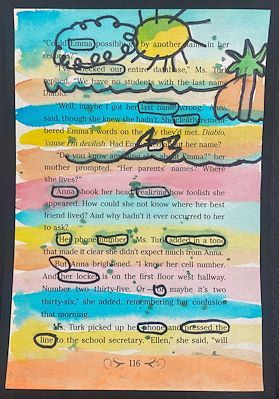 "Could Emma possibly by another name in her
records?"
checked our entire database," Ms. Turk
replied. "We have no students with the last name
Diablo."
"Well, maybe I got her last name wrong," Anna
said, though she knew she hadn't. She clearly remem-
bered Emma's words on the day they'd met. Diablo,
'cause I'm devilish. Had Em about her name?
"Do you know any about Emma?" her
mother prompted. "Her parents' names? Where
she lives?"
Anna shook her head realizing how foolish she
appeared. How could she not know where her best
friend lived? And why hadn't it ever occurred to her
to ask?
Her phone number, Ms. Turk added in a tone
that made it clear she didn't expect much from Anna.
But Anna brightened. "I know her cell number.
And her locker is on the first floor west hallway.
Number two thirty-five. Or maybe it's two
thirty-six," she added, remembering her confusion
that morning.
Ms. Turk picked up her phone and pressed the
line to the school secretary. "Ellen," she said, "will
116